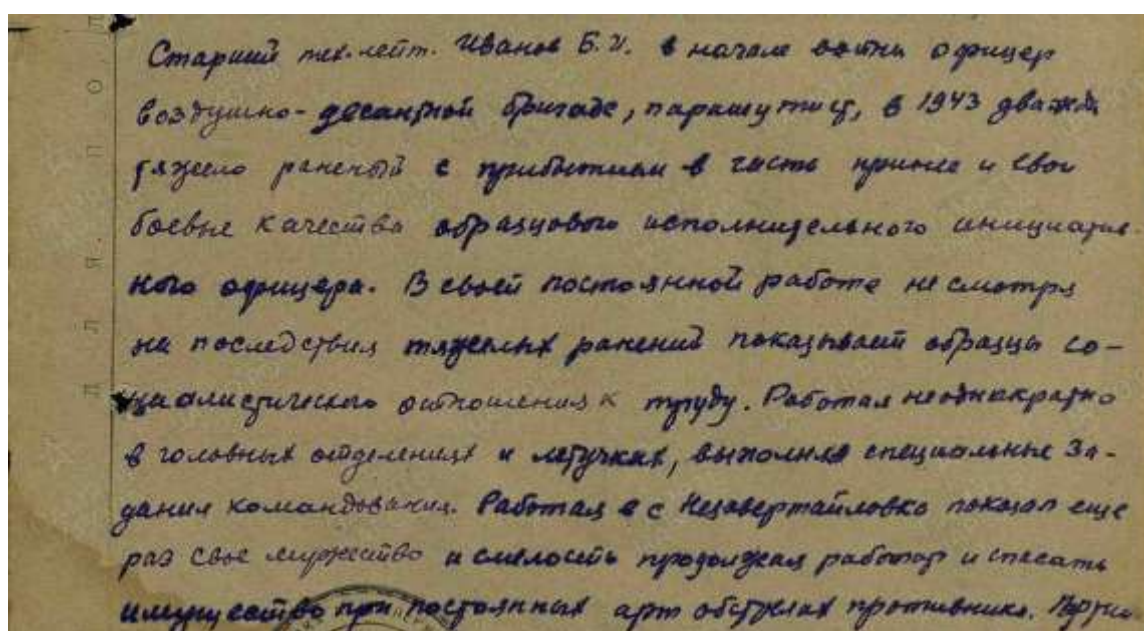 Старший тех.-лейт. Иванов Б.И. в начале войны офицер
воздушно-десантной бригаде, парашутист, в 1943 дважды
тяжело раненый с прибытием в часть принес и свои
боевые качества образцового исполнительного инициатив-
ного офицера. В своей постоянной работе не смотря
на последствия тяжелых ранений показывает образцы со-
циалистического отношения к труду. Работал неоднакратно
в головных отделениях и летучках, выполняя специальные за-
дания командования. Работая в с Незавертайловка показал еще
раз свое мужество и смелость продолжая работать и спасать
имущество при постоянных арт обстрелах противника.